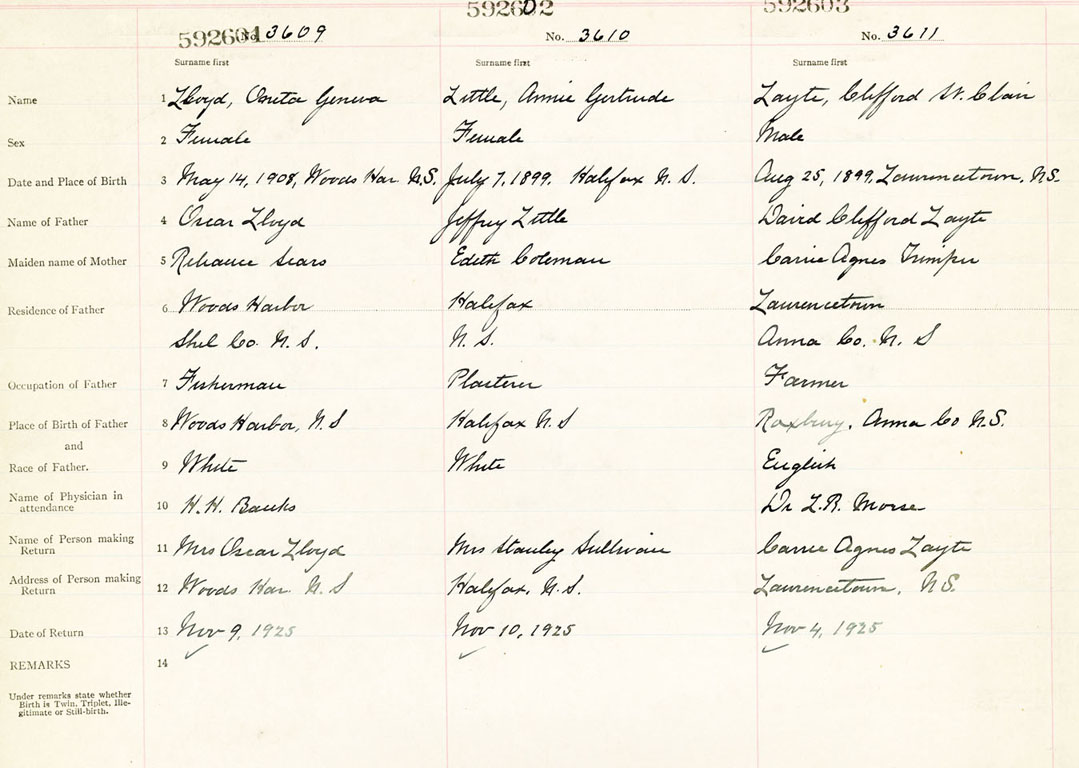 592601 592602 592603
No. 3609 No. 3610 No. 3611
Surname first Surname first Surname first
Name 1 Lloyd, Oneta Geneva Little, Annie Gertrude Layte, Clifford St. Clair
Sex 2 Female Female Male
Date and Place of Birth 3 May 14, 1908, Woods Har. N.S. July 7, 1899. Halifax N. S. Aug 25, 1899, Lawrencetown, N.S.
Name of Father 4 Oscar Lloyd Jeffrey Little David Clifford Layte
Maiden name of Mother 5 Reliance Sears Edith Coleman Carrie Agnes Trimper
Residence of Father 6 Woods Harbor Halifax Lawrencetown
Shel Co. N. S. N. S. Anna Co. N. S
Occupation of Father 7 Fisherman Plasterer Farmer
Place of Birth of Father 8 Woods Harbor, N. S Halifax N. S Roxbury, Anna Co N.S.
and
Race of Father. 9 White White English
Name of Physician in
attendance 10 H. H. Banks Dr L. R. Morse
Name of Person making
Return 11 Mrs Oscar Lloyd Mrs Stanley Sullivan Carrie Agnes Layte
Address of Person making
Return 12 Woods Har. N. S Halifax, N. S. Lawrencetown, N.S.
Date of Return 13 Nov 9, 1925 Nov 10, 1925 Nov 4, 1925
REMARKS 14
Under remarks state whether
Birth is Twin, Triplet, Ille-
gitimate or Still-birth.